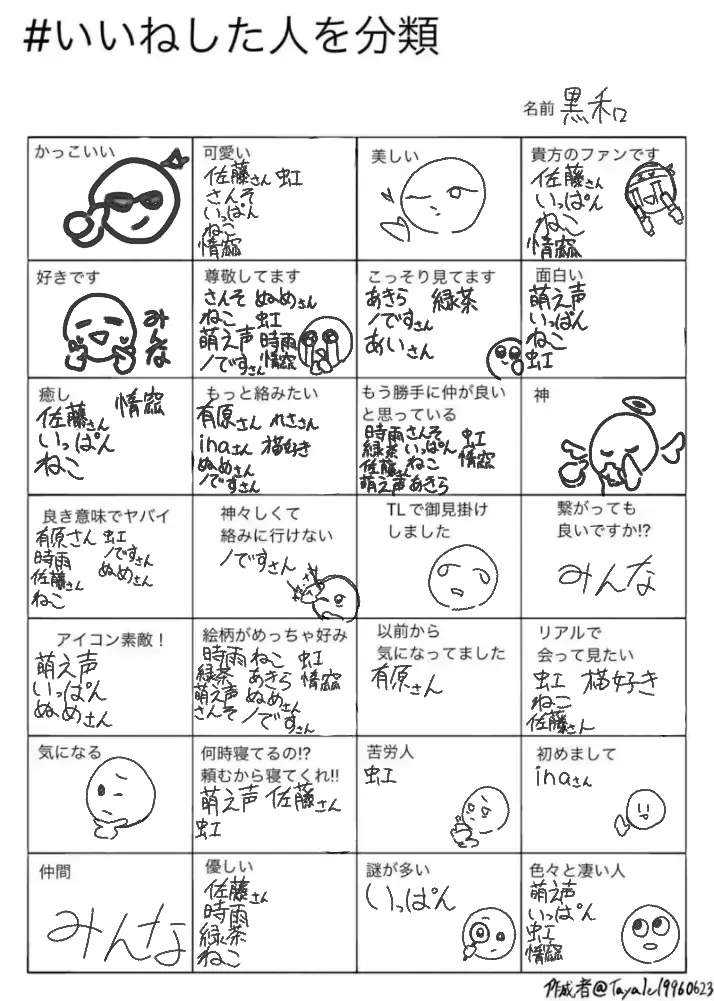 #いいねした人を分類
名前 黒和
かっこいい
可愛い
佐藤さん 虹
さんそ
いっぱん
ねこ
惰窓
美しい
貴方のファンです
佐藤さん
いっぱん
ねこ
惰窓
好きです
みんな
尊敬してます
さんそ ぬめさん
ねこ 虹
萌え声 時雨
ノですさん 惰窓
こっそり見てます
あきら 緑茶
ノですさん
あいさん
面白い
萌え声
いっぱん
ねこ
虹
癒し
佐藤さん 惰窓
いっぱん
ねこ
もっと絡みたい
有原さん れささん
inaさん 猫好き
ぬめさん
ノですさん
もう勝手に仲が良い
と思っている
時雨 さんそ 虹
緑茶 いっぱん
佐藤さん ねこ 惰窓
萌え声 あきら
神
良き意味でヤバイ
有原さん 虹
時雨 ノですさん
佐藤さん ぬめさん
ねこ
神々しくて
絡みに行けない
ノですさん
TLで御見掛け
しました
繋がっても
良いですか!?
みんな
アイコン素敵！
萌え声
いっぱん
ぬめさん
絵柄がめっちゃ好み
時雨 ねこ 虹
緑茶 あきら 惰窓
萌え声 ぬめさん
さんそ ノですさん
以前から
気になってました
有原さん
リアルで
会って見たい
虹 猫好き
ねこ
佐藤さん
気になる
何時寝てるの!?
頼むから寝てくれ!!
萌え声 佐藤さん
虹
苦労人
虹
初めまして
inaさん
仲間
みんな
優しい
佐藤さん
時雨
緑茶
ねこ
謎が多い
いっぱん
色々と凄い人
萌え声
いっぱん
虹
惰窓
作成者